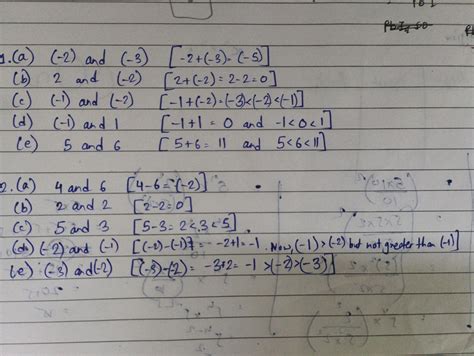 1.(a) (-2) and (-3) [-2+(-3)=(-5)]
(b) 2 and (-2) [2+(-2)=2-2=0]
(c) (-1) and (-2) [-1+(-2)=(-3)<(-2)<(-1)]
(d) (-1) and 1 [-1+1=0 and -1<0<1]
(e) 5 and 6 [5+6=11 and 5<6<11]
2.(a) 4 and 6 [4-6=(-2)]
(b) 2 and 2 [2-2=0]
(c) 5 and 3 [5-3=2<3<5]
(d) (-2) and (-1) [(-2)-(-1)= -2+1=-1. Now, (-1)>(-2) but not greater than (-1)]
(e) (-3) and (-2) [(-3)-(-2)= -3+2=-1>(-2)>(-3)]